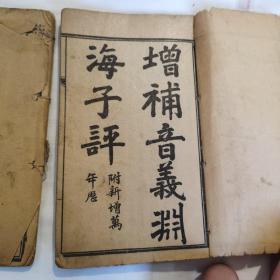 增補音義淵
海子評
附新增萬
年曆